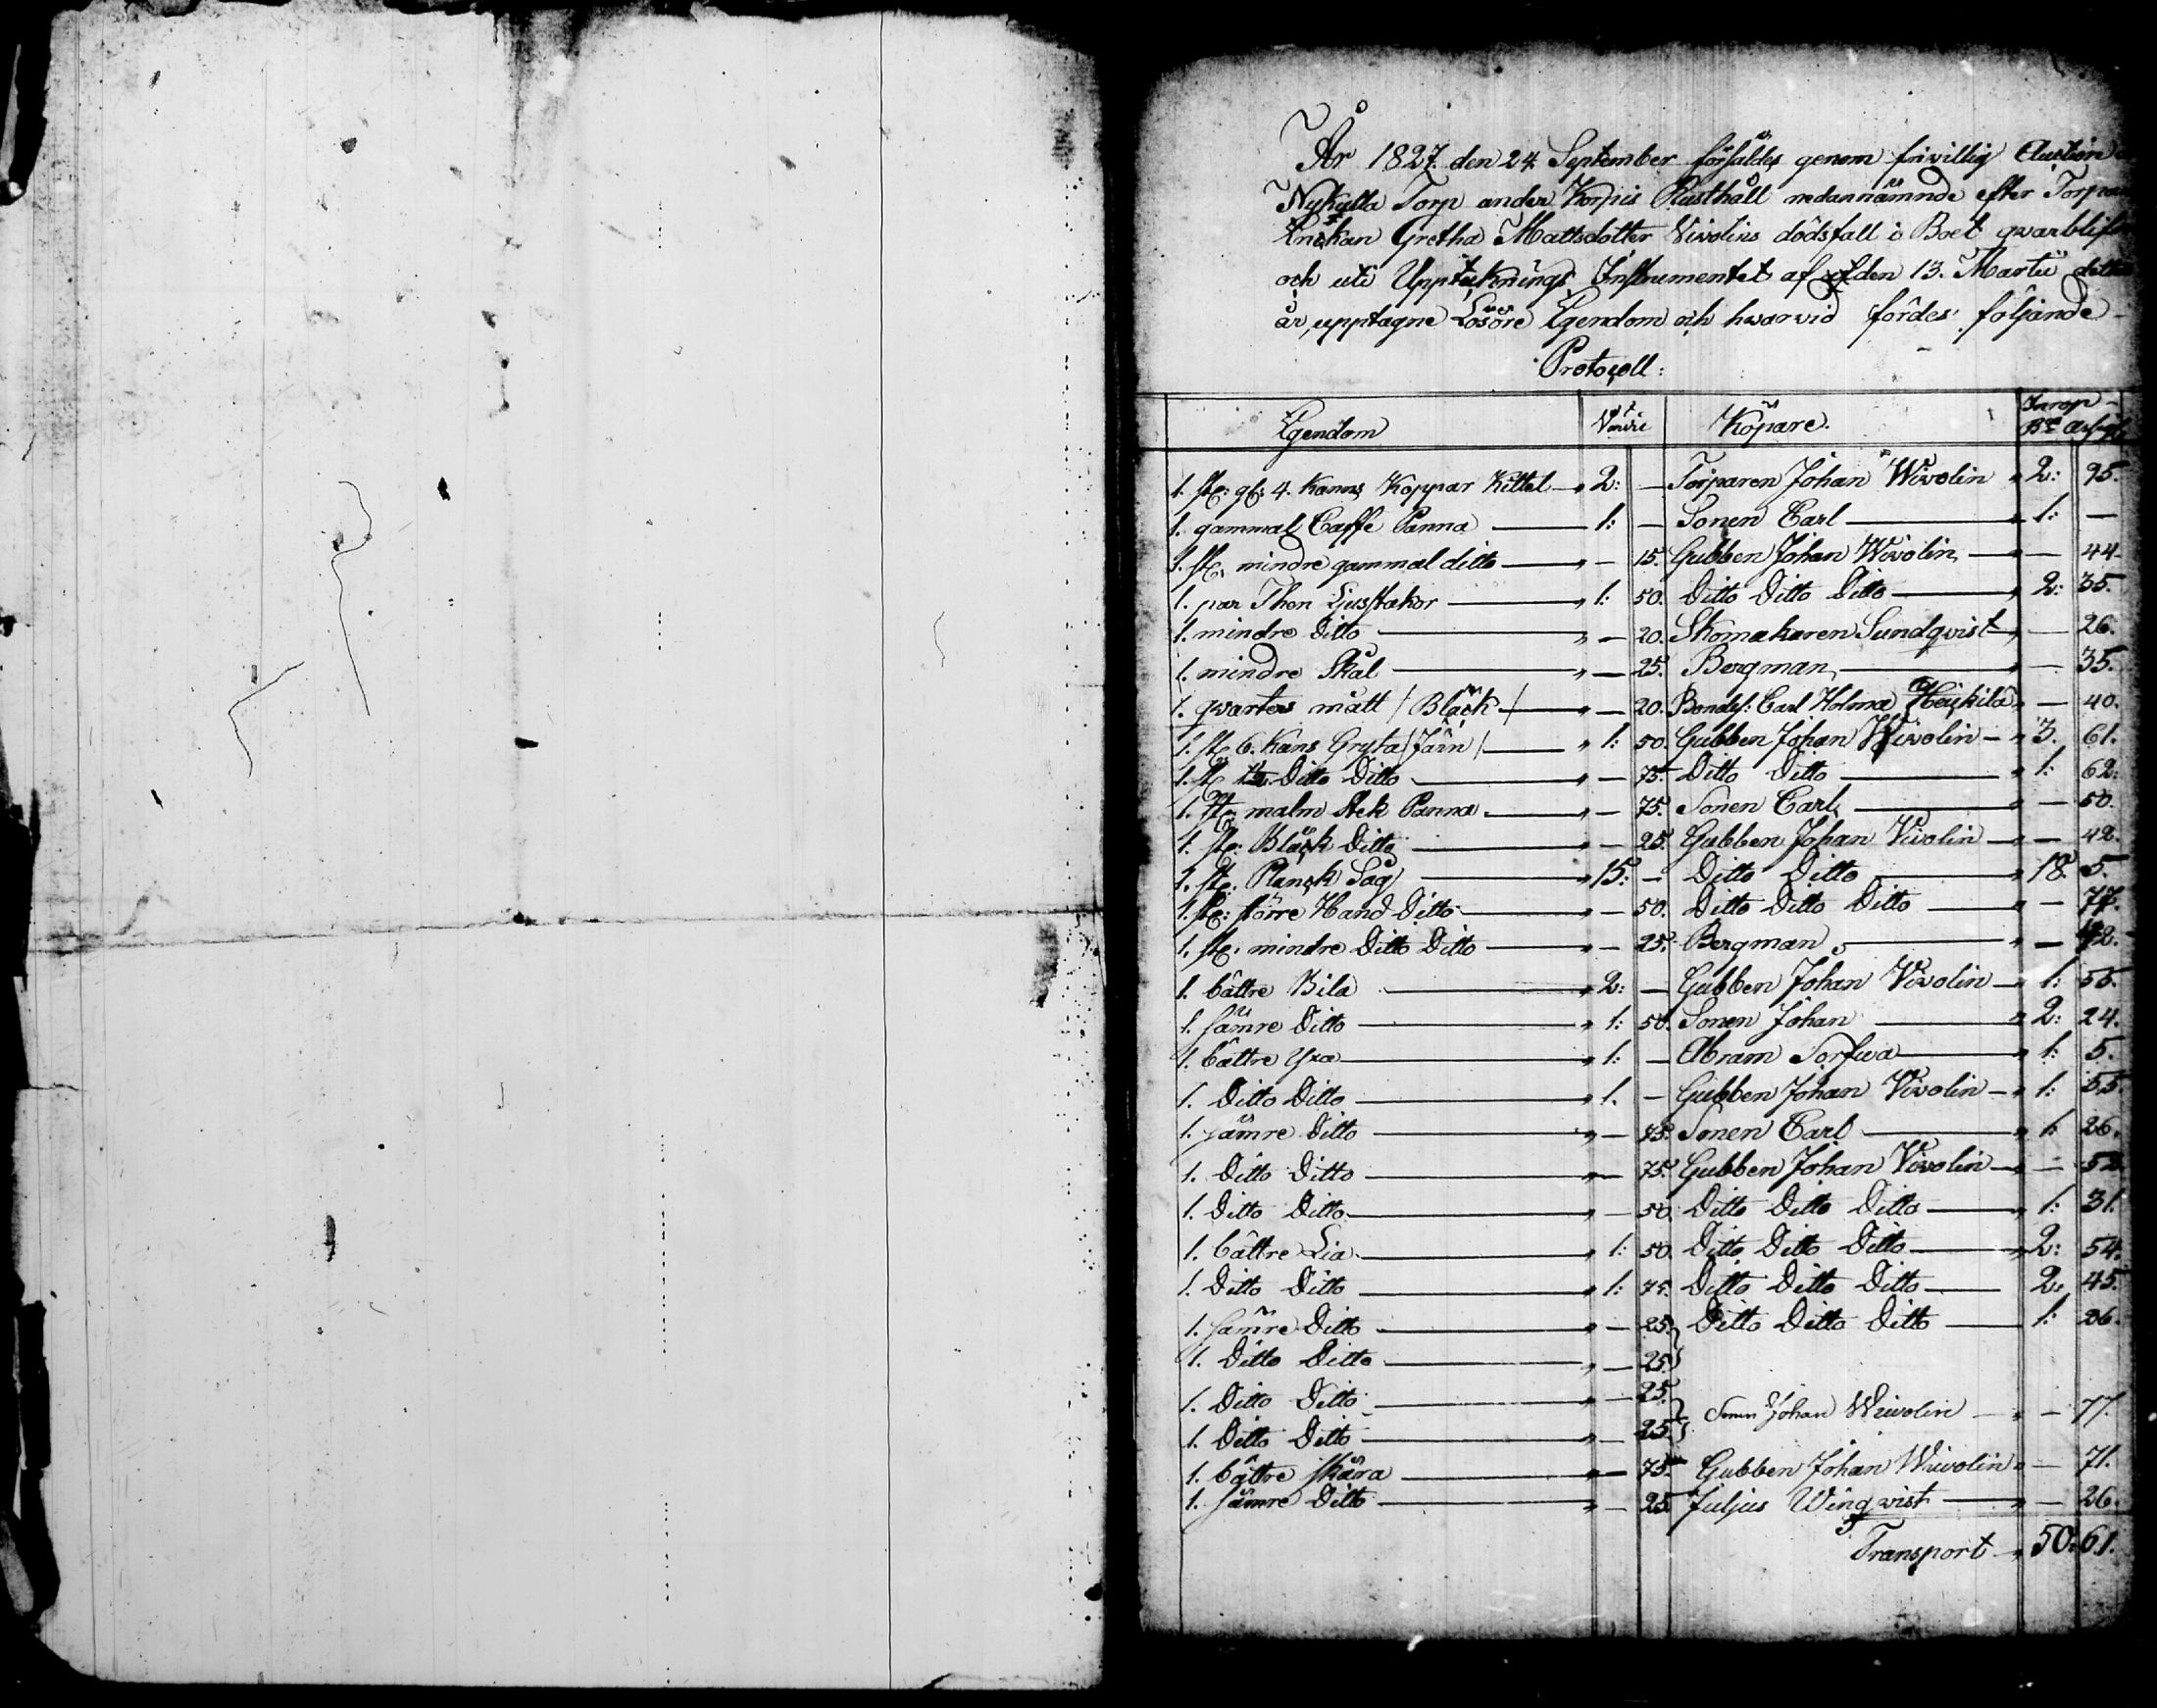 År 1827. den 24 September försåldes genom frivillig Auction
Nykulla Torp under Korpis Rusthåll nedannämnde efter
Enckan Gretha Mattsdotter Vivolins dödsfall i Boet
och uti Upptecknings Instrumentet af den 13. Martii
år, upptagne Lösöre Egendom och hwarvid fördes följande
Protocoll:
Egendom Värde Köpare. Inrop
1. st: gl: 4. Kanns Koppar Kittel „ 2: — Torparen Johan Wivolin „ 2: 95.
1. gammal Caffe Panna 1: — Sonen Carl „ 1: —
1. st. mindre gammal ditto „ — 15. Gubben Johan Wivolin — 44
1. par Then Ljusstakor „ 1: 50. Ditto Ditto Ditto „ 2: 35.
1. mindre Ditto „ — 20. Skomakaren Sundqvist „ — 26.
1. mindre Skål „ — 25. Bergman „ — 35.
1. qwarters mått / Bläck / „ — 20. Bondes: Carl Holma Heickilä „ — 40.
1. st. 6. Kans Gryta / Järn / „ 1: 50. Gubben Johan Wivolin „ 3. 61.
1. st Ditto Ditto „ — 75. Ditto Ditto „ 1: 62:
1. st. malm Stek Panna „ — 75. Sonen Carl „ — 50.
1. st: Bläck Ditto „ — 25. Gubben Johan Vivolin „ — 42.
1. st. Planck Såg „ 15: — Ditto Ditto „ 18. 5.
1. st: större Hand Ditto „ — 50. Ditto Ditto Ditto „ — 77.
1. st. mindre Ditto Ditto „ — 25. Bergman „ —
1. bättre Bila „ 2: — Gubben Johan Vivolin „ 1: 55.
1. sämre Ditto „ 1: 50. Sonen Johan „ 2: 24.
1. bättre Yxa „ 1: — Abram Sorfwa „ 1: 5.
1. Ditto Ditto „ 1. — Gubben Johan Vivolin „ 1: 55.
1. sämre Ditto „ — 75. Sonen Carl „ 1. 26.
1. Ditto Ditto „ — 75. Gubben Johan Vivolin „ — 52.
1. Ditto Ditto „ — 50. Ditto Ditto Ditto „ 1: 31.
1. bättre Lia „ 1: 50. Ditto Ditto Ditto „ 2: 54.
1. Ditto Ditto „ 1: 75. Ditto Ditto Ditto 2: 45.
1. sämre Ditto „ — 25. Ditto Ditto Ditto 1: 26.
1. Ditto Ditto „ — 25.
1. Ditto Ditto „ — 25.
1. Ditto Ditto „ — 25. Sonen Johan Wivolin „ — 77.
1. bättre skära „ — 75. Gubben Johan Wivolin „ — 71.
1. sämre Ditto „ — 25. Juljus Winqvist „ — 26.
Transport „ 50: 61.